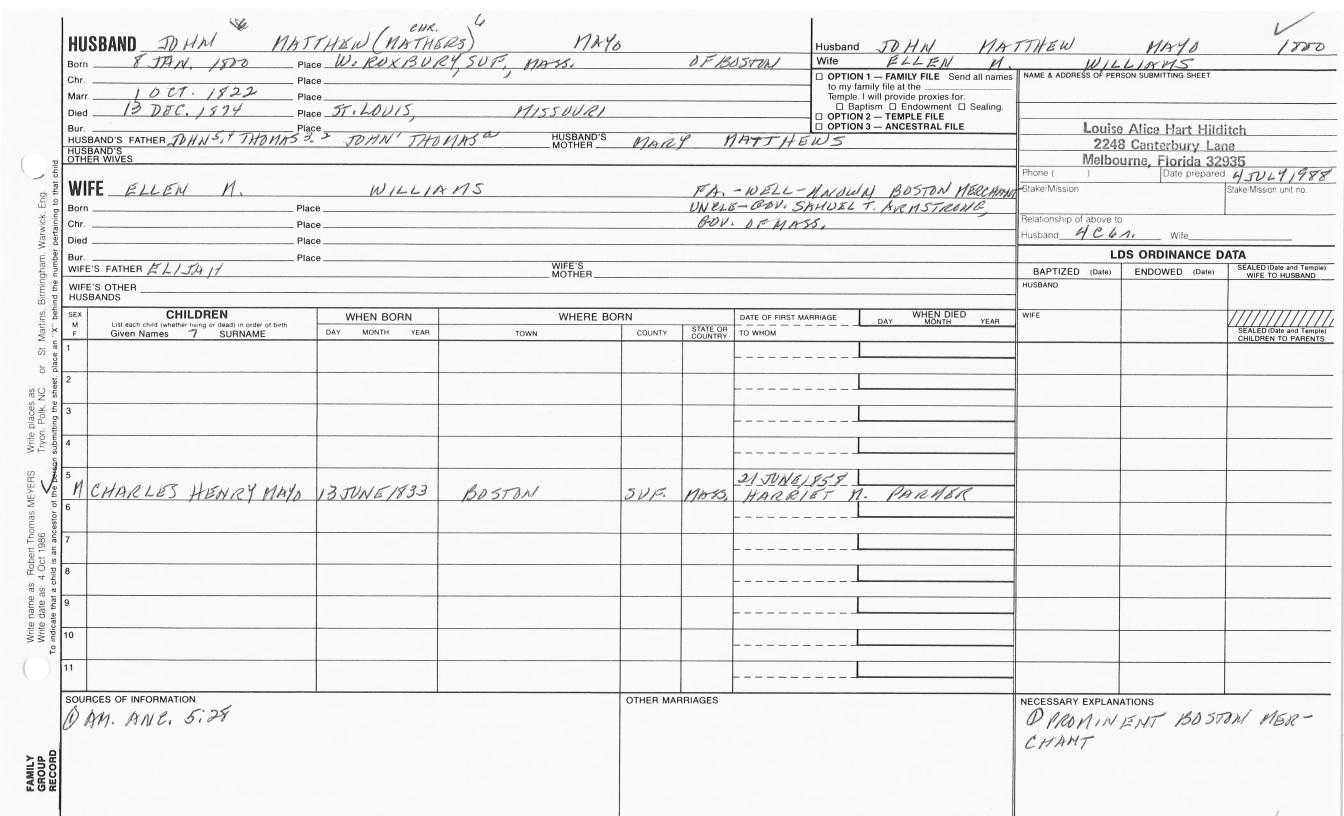 CHR. 6
HUSBAND JOHN MATTHEW (MATHERS) MAYO
Born 8 JAN. 1800 Place W. ROXBURY, SUF., MASS. OF BOSTON
Chr. Place
Marr. 1 OCT. 1822 Place
Died 13 DEC. 1874 Place ST. LOUIS, MISSOURI
Bur. Place
HUSBAND'S FATHER JOHN 5,4 THOMAS 3,2 JOHN 1 THOMAS a HUSBAND'S MOTHER MARY MATTHEWS
HUSBAND'S OTHER WIVES
Husband JOHN MATTHEW MAYO 1800
Wife ELLEN M. WILLIAMS
☐ OPTION 1 — FAMILY FILE Send all names
to my family file at the
Temple. I will provide proxies for:
☐ Baptism ☐ Endowment ☐ Sealing.
☐ OPTION 2 — TEMPLE FILE
☐ OPTION 3 — ANCESTRAL FILE
NAME & ADDRESS OF PERSON SUBMITTING SHEET
Louise Alice Hart Hilditch
2248 Canterbury Lane
Melbourne, Florida 32935
Phone ( ) Date prepared 4 JULY, 1988
Stake/Mission Stake/Mission unit no.
Relationship of above to
Husband 4C 6r. Wife
WIFE ELLEN M. WILLIAMS FA. - WELL-KNOWN BOSTON MERCHANT
Born Place UNCLE-GOV. SAMUEL T. ARMSTRONG,
Chr. Place GOV. OF MASS.
Died Place
Bur. Place
WIFE'S FATHER ELIJAH WIFE'S MOTHER
WIFE'S OTHER HUSBANDS
LDS ORDINANCE DATA
BAPTIZED (Date) ENDOWED (Date) SEALED (Date and Temple) WIFE TO HUSBAND
HUSBAND
WIFE
SEALED (Date and Temple) CHILDREN TO PARENTS
SEX M F
CHILDREN
List each child (whether living or dead) in order of birth
Given Names 7 SURNAME
WHEN BORN
DAY MONTH YEAR
WHERE BORN
TOWN COUNTY STATE OR COUNTRY
DATE OF FIRST MARRIAGE
TO WHOM
WHEN DIED
DAY MONTH YEAR
1
2
3
4
5 21 JUNE, 1858
M CHARLES HENRY MAYO 13 JUNE 1833 BOSTON SUF. MASS. HARRIET M. PARKER
6
7
8
9
10
11
SOURCES OF INFORMATION
① AM. ANC. 5:28
OTHER MARRIAGES
NECESSARY EXPLANATIONS
① PROMINENT BOSTON MER-
CHANT
Write name as: Robert Thomas MEYERS Write places as: Tryon, Polk, NC or St. Martins, Birmingham, Warwick, Eng.
Write date as: 4 Oct 1986
To indicate that a child is an ancestor of the person submitting the sheet, place an "X" behind the number pertaining to that child
FAMILY
GROUP
RECORD